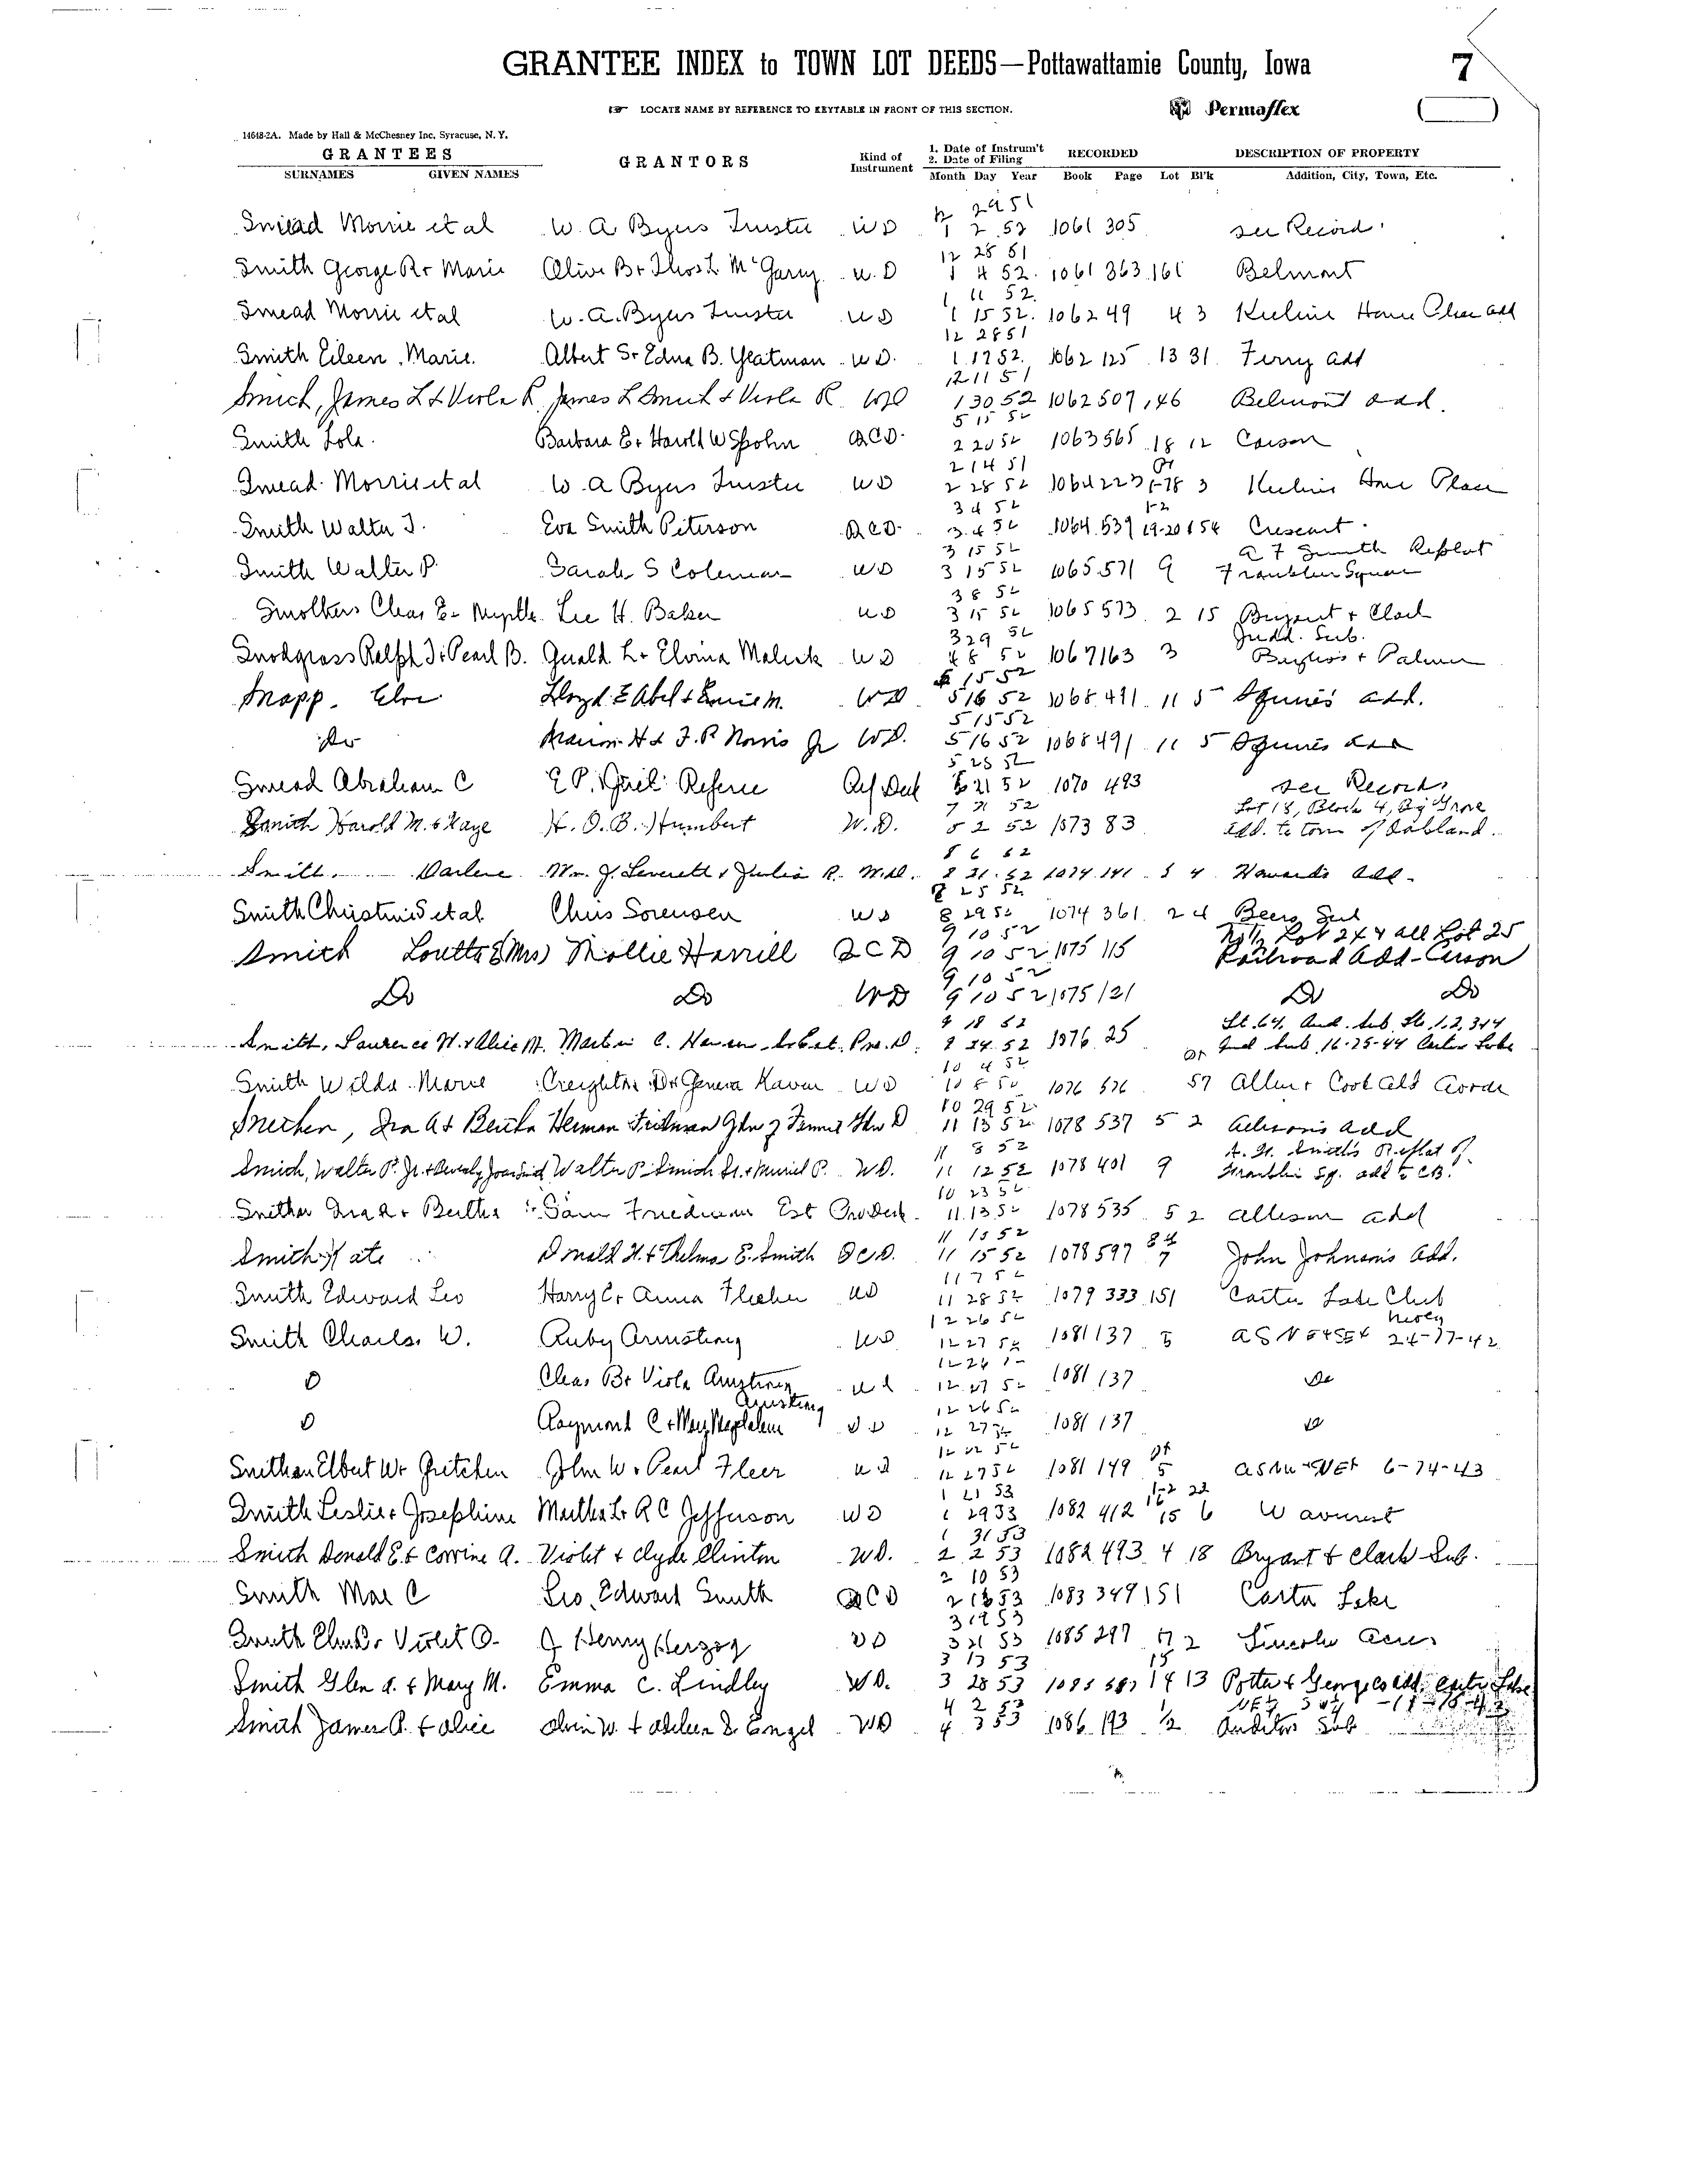 GRANTEE INDEX to TOWN LOT DEEDS—Pottawattamie County, Iowa 7
☞ LOCATE NAME BY REFERENCE TO KEYTABLE IN FRONT OF THIS SECTION. Permaflex
14648-2A. Made by Hall & McChesney Inc. Syracuse, N. Y.
GRANTEES GRANTORS Kind of Instrument 1. Date of Instrum't 2. Date of Filing RECORDED DESCRIPTION OF PROPERTY
SURNAMES GIVEN NAMES Month Day Year Book Page Lot Bl'k Addition, City, Town, Etc.
12 29 51
Smead Morrie et al W. A Byers Trustee WD 1 2 52 1061 305 see Record
12 28 51
Smith George R + Marie Olive B + Thos L McGarry W.D 1 4 52 1061 363 161 Belmont
1 11 52
Smead Morrie et al W. A. Byers Trustee WD 1 15 52 1062 49 4 3 Keeline Home Place add
12 28 51
Smith Eileen Marie Albert S + Edna B. Yeatman WD. 1 17 52 1062 125 13 31 Ferry add
12 11 51
Smith, James L & Viola R James L Smith & Viola R WD 1 30 52 1062 507 146 Belmont add.
5 15 52
Smith Lola Barbara E + Harold W Spohn QCD. 2 20 52 1063 565 18 12 Carson
2 14 51 Pt
Smead Morrie et al W. A Byers Trustee WD 2 28 52 1064 223 3 Keeline Home Place
3 4 52 1-2
Smith Walter J. Eva Smith Peterson QCD. 3 4 52 1064 539 19-20 154 Crescent
3 15 52 A F Smith Replat
Smith Walter P. Sarah S Coleman WD 3 15 52 1065 571 9 Franklin Square
3 8 52
Smothers Chas E + Myrtle Lee H. Baker WD 3 15 52 1065 573 2 15 Bryant + Clark
3 29 52 Judd. Sub.
Snodgrass Ralph J + Pearl B. Gerald L + Elvina Malick WD 4 8 52 1067 163 3 Bayliss + Palmer
5 15 52
Snapp. Elve Lloyd E Abel & Emrie M. WD 5 16 52 1068 491 11 5 Squires add.
5 15 52
Do Marion H & F. P Norris Jr WD. 5 16 52 1068 491 11 5 Squires add
5 28 52
Smead Abraham C E P. Referee Ref Deed 6 21 52 1070 493 see Records
7 31 52 Lot 18, Block 4, Big Grove
Smith Harold M. & Kaye H. O. B. Humbert W. D. 5 2 52 1073 83 add. to town of Oakland.
8 6 52
Smith Darlene Wm. J. Leverett & Julia R. W.D. 8 21 52 1074 141 5 4 Howards Add.
8 25 52
Smith Christinis et al Chris Sorensen WD 8 29 52 1074 361 24 Beers Sub
9 10 52 N½ Lot 24 & all Lot 25
Smith Loutta (Mrs) Mollie Harrill QCD 9 10 52 1075 115 Railroad Add-Carson
9 10 52
Do Do WD 9 10 52 1075 121 Do Do
9 18 52 Lt. 64. Aud. Sub.
Smith, Laurence W. & Alice M. Martin C. 9 24 52 1076 25 Pt Aud Sub 16-75-44 Carter Lake
10 4 52
Smith Wilda Marie Creighton D + Geneva WD 10 8 52 1076 576 57 Allen + Cook add Avoca
10 29 52
Smethen, Ira A & Bertha Herman Friedman Gdn of D 11 13 52 1078 537 5 2 add
11 8 52 A. F. Smith's Replat of
Smith, Walter P. Jr. & Beverly Walter P. Smith Sr. & Muriel P. WD. 11 12 52 1078 401 9 Franklin Sq. add to C.B.
10 23 52
Smithen Ira A + Bertha Sam Friedman Est 11 13 52 1078 535 5 2 Allison add
11 15 52 8 4
Smith Kate Donald H. & Thelma E. Smith QCD. 11 15 52 1078 597 7 John Johnson's Add.
11 7 52
Smith Edward Leo Harry C + Anna Flecher WD 11 28 52 1079 333 151 Carter Lake Club
12 26 52
Smith Charles W. Ruby Armstrong WD 12 27 52 1081 137 5 AS NE4SE4 24-77-42
12 26 5
D Chas B + Viola Armstrong WD 12 27 52 1081 137 Do
Armstrong 12 26 52
D Raymond C + Mary Magdalene WD 12 27 52 1081 137 Do
12 22 52 Pt
Smithen Elbert W + Gretchen John W + Pearl Fleer WD 12 27 52 1081 149 5 6-74-43
1 21 53 1-2 22
Smith Leslie + Josephine Martha L + R C Jefferson WD 1 29 53 1082 412 16 15 6 Wavecrest
1 31 53
Smith Donald E. & Corrine A. Violet & Clyde Clinton WD. 2 2 53 1082 493 4 18 Bryant & Clark Sub.
2 10 53
Smith Mae C Leo Edward Smith QCD 2 16 53 1083 349 151 Carter Lake
3 19 53
Smith + Violet O. J Henry Herzog WD 3 21 53 1085 297 17 2 Lincoln Acres
3 13 53 15
Smith Glen A. & Mary M. Emma C. Lindley WD. 3 28 53 1085 587 14 13 Potter & Georges add. Carter Lake
4 2 53 1
Smith James A. & Alice Alvin W. & D. Engel WD 4 3 53 1086 193 ½ Auditors Sub